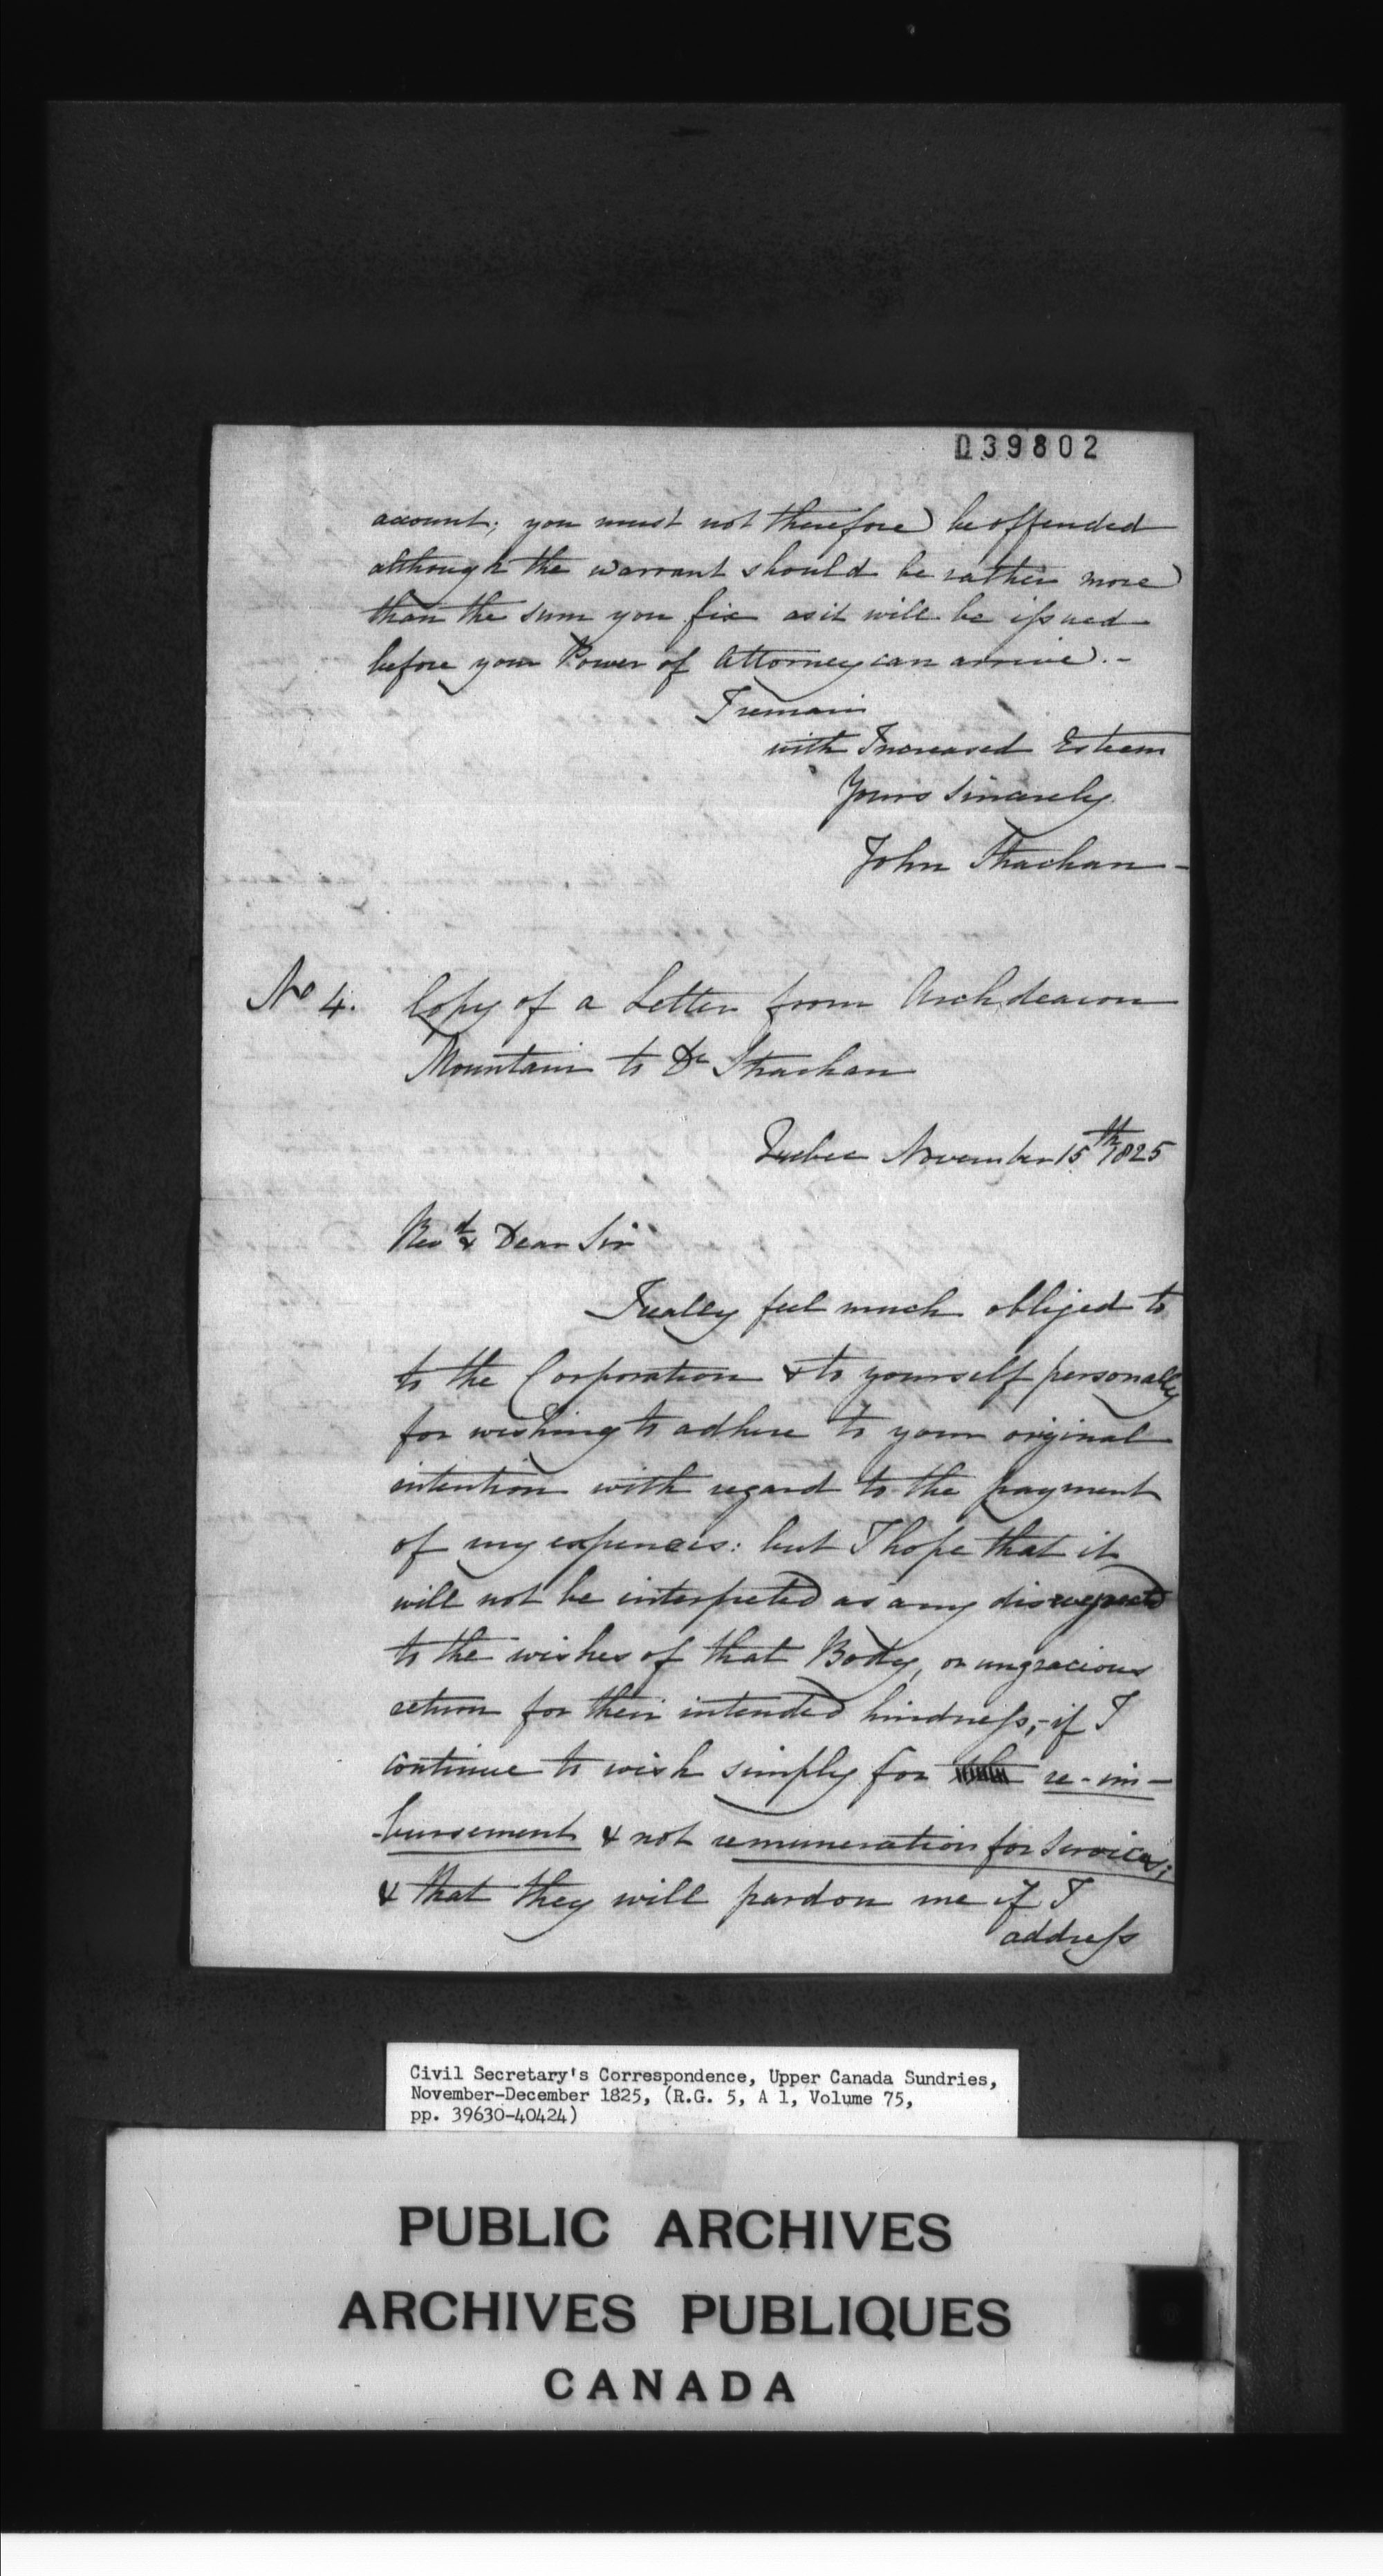 039802
account; you must not therefore be offended
although the warrant should be rather more
than the sum you fix as it will be issued
before your Power of Attorney can arrive. -
I remain
with Increased Esteem
Yours Sincerely
John Strachan -
No 4. Copy of a Letter from Archdeacon
Mountain to Dr Strachan
Quebec November 15th 1825
Revd & Dear Sir
I really feel much obliged to
to the Corporation & to yourself personally
for wishing to adhere to your original
intention with regard to the payment
of my expences: but I hope that it
will not be interpreted as any disrespect
to the wishes of that Body, or ungracious
return for their intended kindness, - if I
continue to wish simply for re-im-
-bursement & not remuneration for Services;
& that they will pardon me if I
address
Civil Secretary's Correspondence, Upper Canada Sundries,
November-December 1825, (R.G. 5, A 1, Volume 75,
pp. 39630-40424)
PUBLIC ARCHIVES
ARCHIVES PUBLIQUES
CANADA